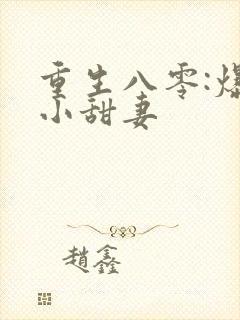 重生八零:爆
小甜妻
趙鑫